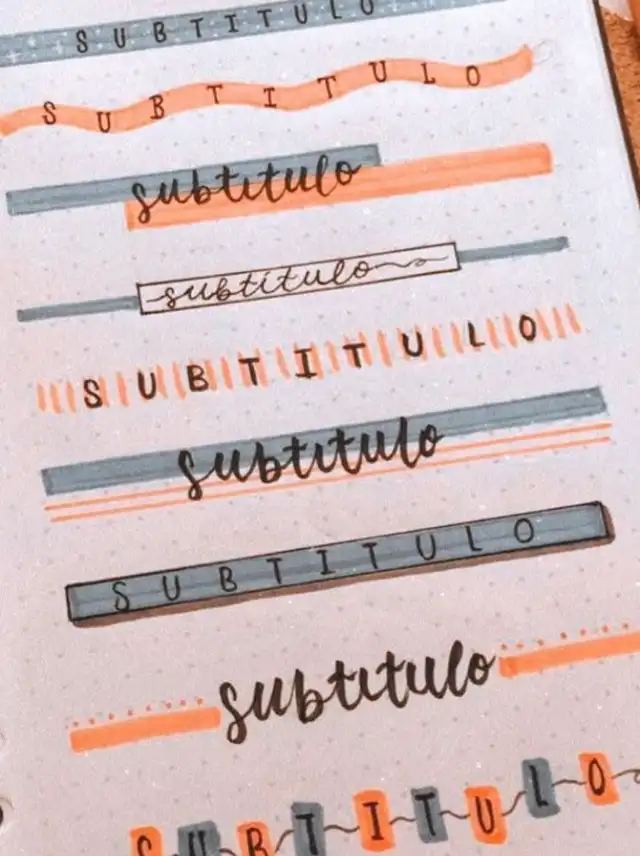 SUBTITULO
SUBTITULO
subtitulo
subtitulo
SUBTITULO
subtitulo
SUBTITULO
subtitulo
SUBTITULO